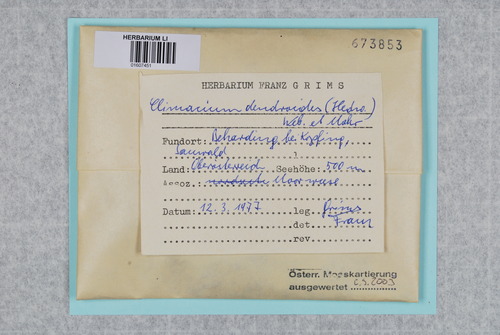 HERBARIUM LI
01607451
673853
HERBARIUM FRANZ GRIMS
Climacium dendroides (Hedw.)
Web. et Mohr
Fundort: Beharding, be Kopfing,
Sauwald
Land: Oberösterreich Seehöhe: 500 m
Assoz.: Moorwiese
Datum: 12. 3. 1977 leg. Grims
det. Franz
rev.
Österr. Mooskartierung
ausgewertet 2003